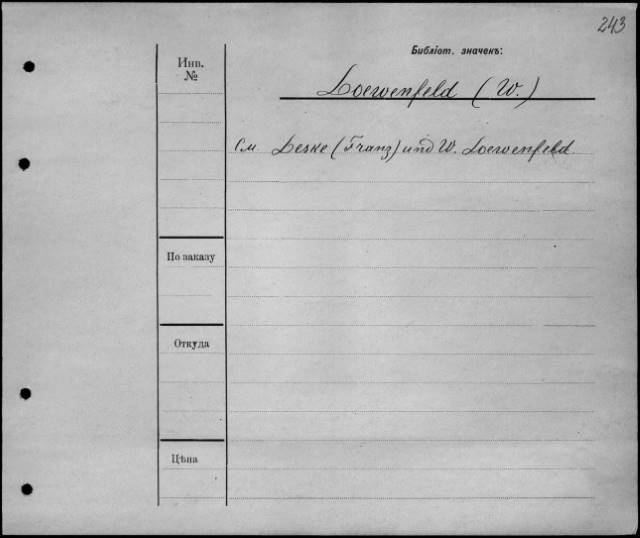 243
Библіот. значекъ:
Инв.
№
Loewenfeld (W.)
См. Leske (Franz) und W. Loewenfeld
По заказу
Откуда
Цѣна